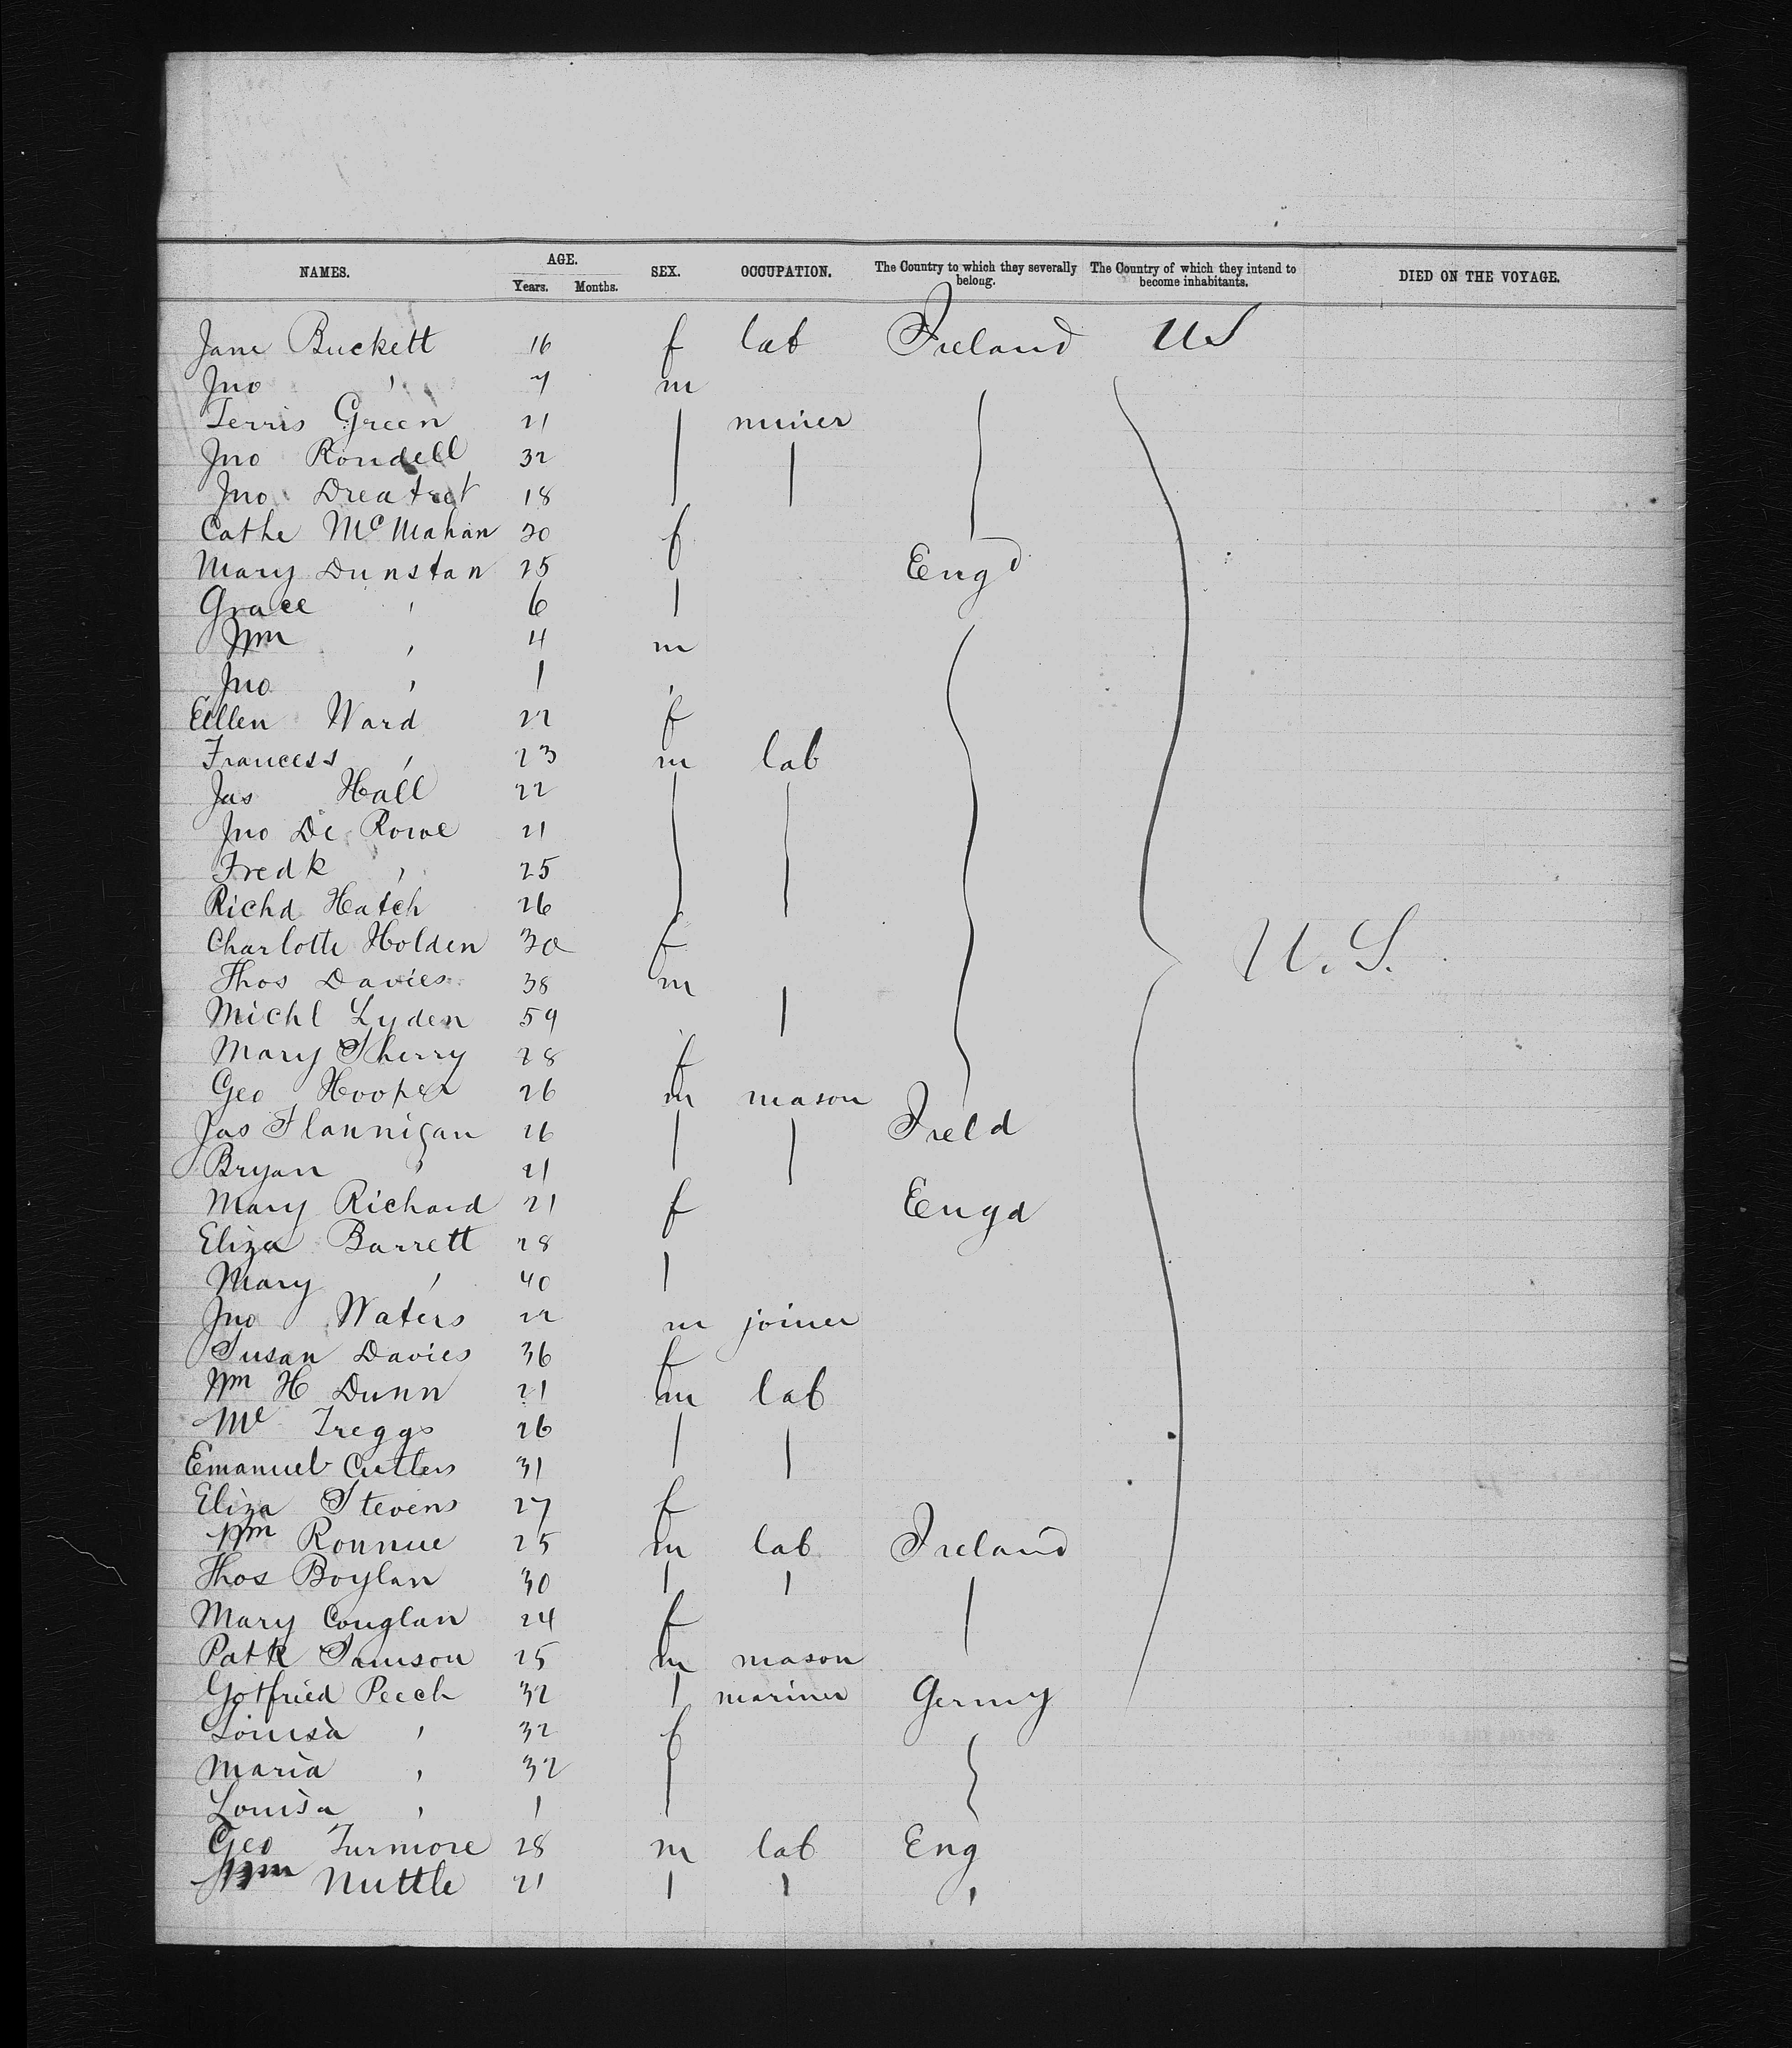 NAMES. AGE. SEX. OCCUPATION. The Country to which they severally belong. The Country of which they intend to become inhabitants. DIED ON THE VOYAGE.
Years. Months.
Jane Buckett 16 f lab Ireland US
Jno ' 7 m
Terris Green 21 miner
Jno Rondell 32
Jno 18
Cathe McMahan 30 f
Mary Dunstan 25 Engd
Grace ' 6
Wm ' 4 m
Jno ' 1
Ellen Ward 22 f
Francess ' 23 m lab
Jas Hall 22
Jno De Rowe 21
Fredk ' 25
Richd Hatch 26
Charlotte Holden 30 f U. S.
Thos Davies 38 m
Michl Lyden 59
Mary Sherry 28 f
Geo Hooper 26 m mason
Jas Flannigan 26 Ireld
Bryan ' 21
Mary Richard 21 f Engd
Eliza Barrett 28
Mary ' 40
Jno Waters 22 m joiner
Susan Davies 36 f
Wm H Dunn 21 m lab
Treggs 26
Emanuel Cutlers 31
Eliza Stevens 27 f
Wm Ronnue 25 m lab Ireland
Thos Boylan 30
Mary Couglan 24 f
Patk Samson 25 m mason
Gotfried Peech 32 mariner Germy
Louisa ' 32 f
Maria ' 32
Louisa ' 1
Geo Turmore 28 m lab Eng
Wm Nuttle 21